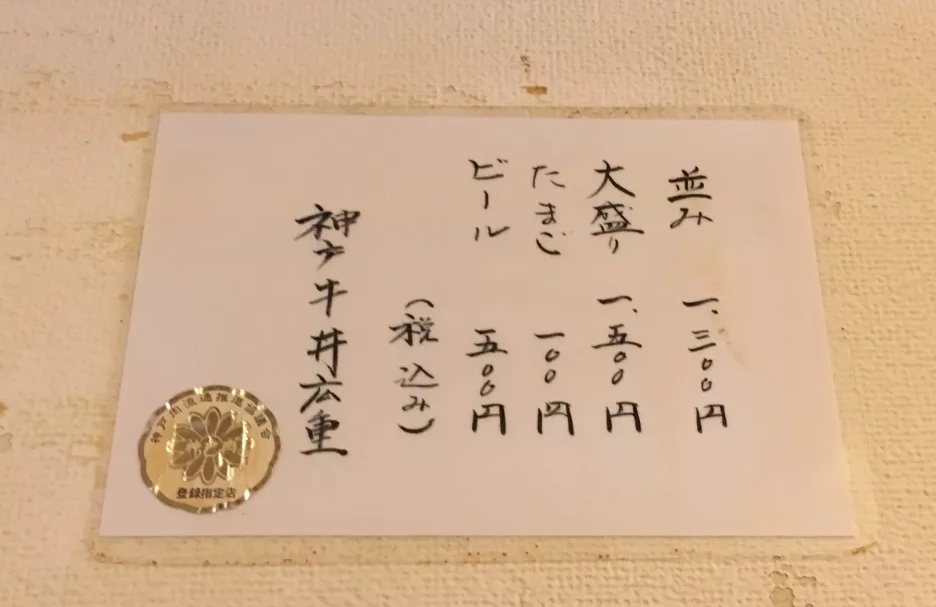 並み 一、三〇〇円
大盛り 一、五〇〇円
たまご 一〇〇円
ビール 五〇〇円
(税込み)
神戸牛丼広重
神戸肉流通推進協議会
登録指定店